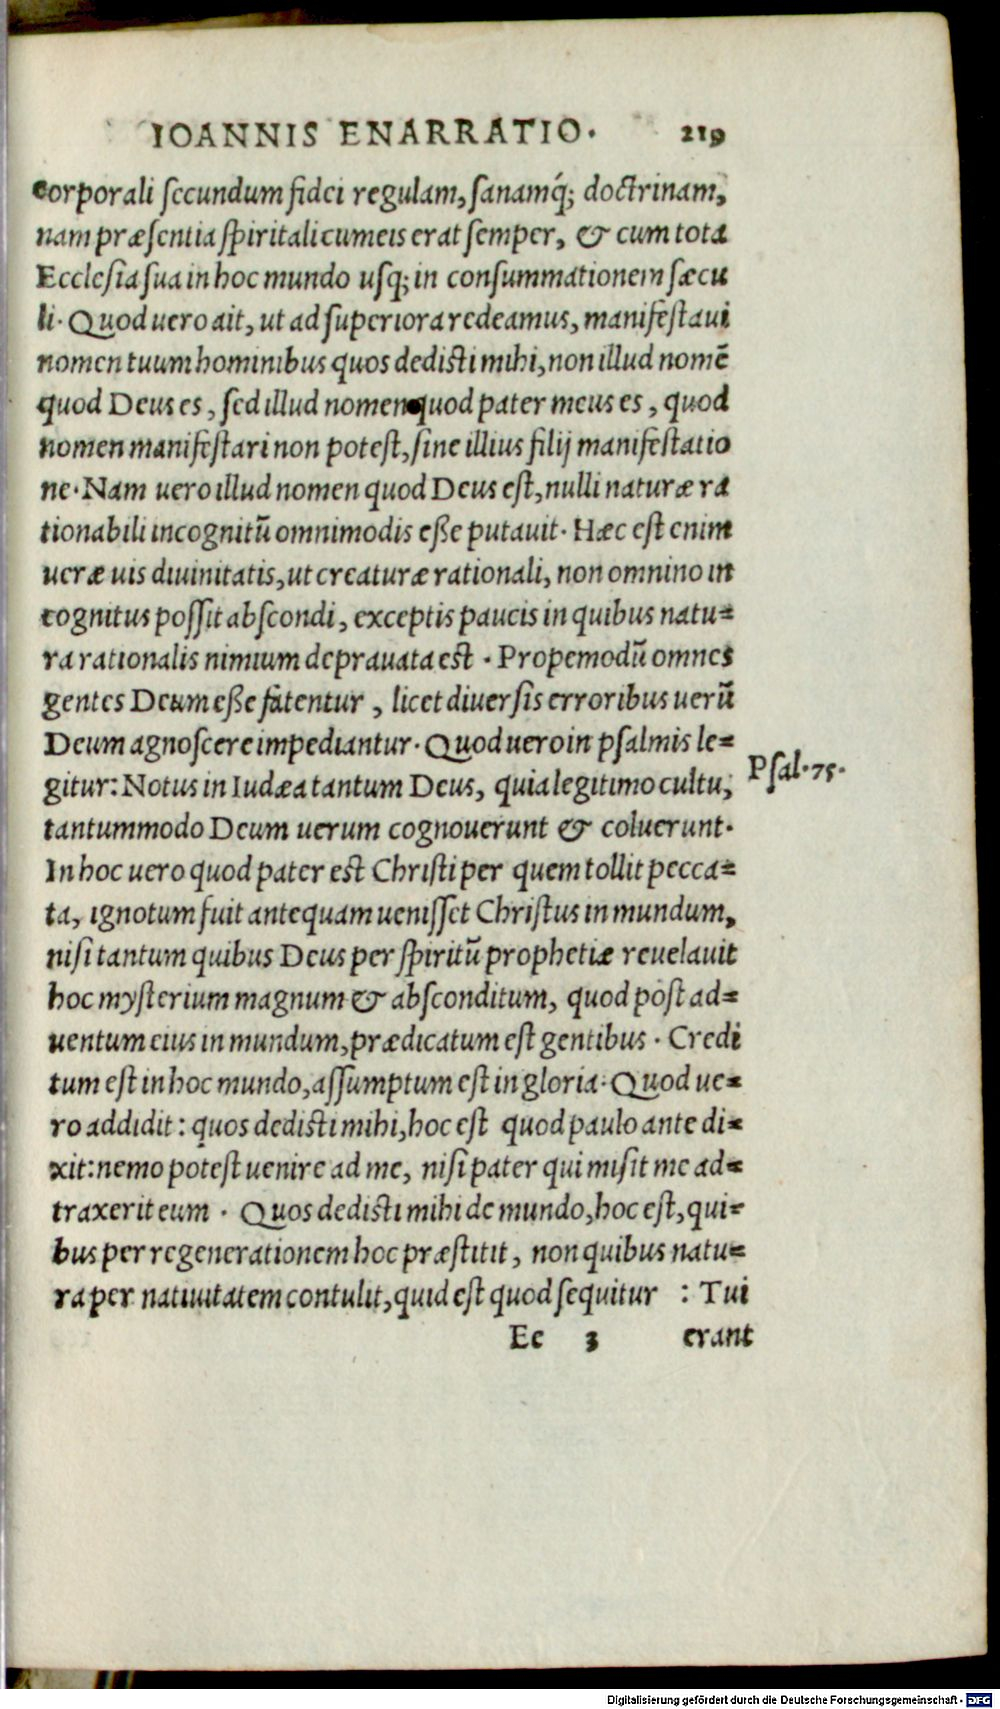 IOANNIS ENARRATIO. 219
corporali secundum fidei regulam, sanamq́; doctrinam,
nam præsentia spiritali cum eis erat semper, & cum tota
Ecclesia sua in hoc mundo usq; in consummationem sæcu
li. Quod uero ait, ut ad superiora redeamus, manifestaui
nomen tuum hominibus quos dedisti mihi, non illud nomē
quod Deus es, sed illud nomen quod pater meus es, quod
nomen manifestari non potest, sine illius filij manifestatio
ne. Nam uero illud nomen quod Deus est, nulli naturæ ra
tionabili incognitū omnimodis esse putauit. Hæc est enim
ueræ uis diuinitatis, ut creaturæ rationali, non omnino in
cognitus possit abscondi, exceptis paucis in quibus natu-
ra rationalis nimium deprauata est. Propemodū omnes
gentes Deum esse fatentur, licet diuersis erroribus uerū
Deum agnoscere impediantur. Quod uero in psalmis le-
gitur: Notus in Iudæa tantum Deus, quia legitimo cultu,
Psal. 75.
tantummodo Deum uerum cognouerunt & coluerunt.
In hoc uero quod pater est Christi per quem tollit pecca-
ta, ignotum fuit antequam uenisset Christus in mundum,
nisi tantum quibus Deus per spiritū prophetiæ reuelauit
hoc mysterium magnum & absconditum, quod post ad-
uentum eius in mundum, prædicatum est gentibus. Credi
tum est in hoc mundo, assumptum est in gloria. Quod ue-
ro addidit: quos dedisti mihi, hoc est quod paulo ante di-
xit: nemo potest uenire ad me, nisi pater qui misit me ad-
traxerit eum. Quos dedisti mihi de mundo, hoc est, qui-
bus per regenerationem hoc præstitit, non quibus natu-
ra per natiuitatem contulit, quid est quod sequitur : Tui
Ee 3 erant
Digitalisierung gefördert durch die Deutsche Forschungsgemeinschaft - DFG